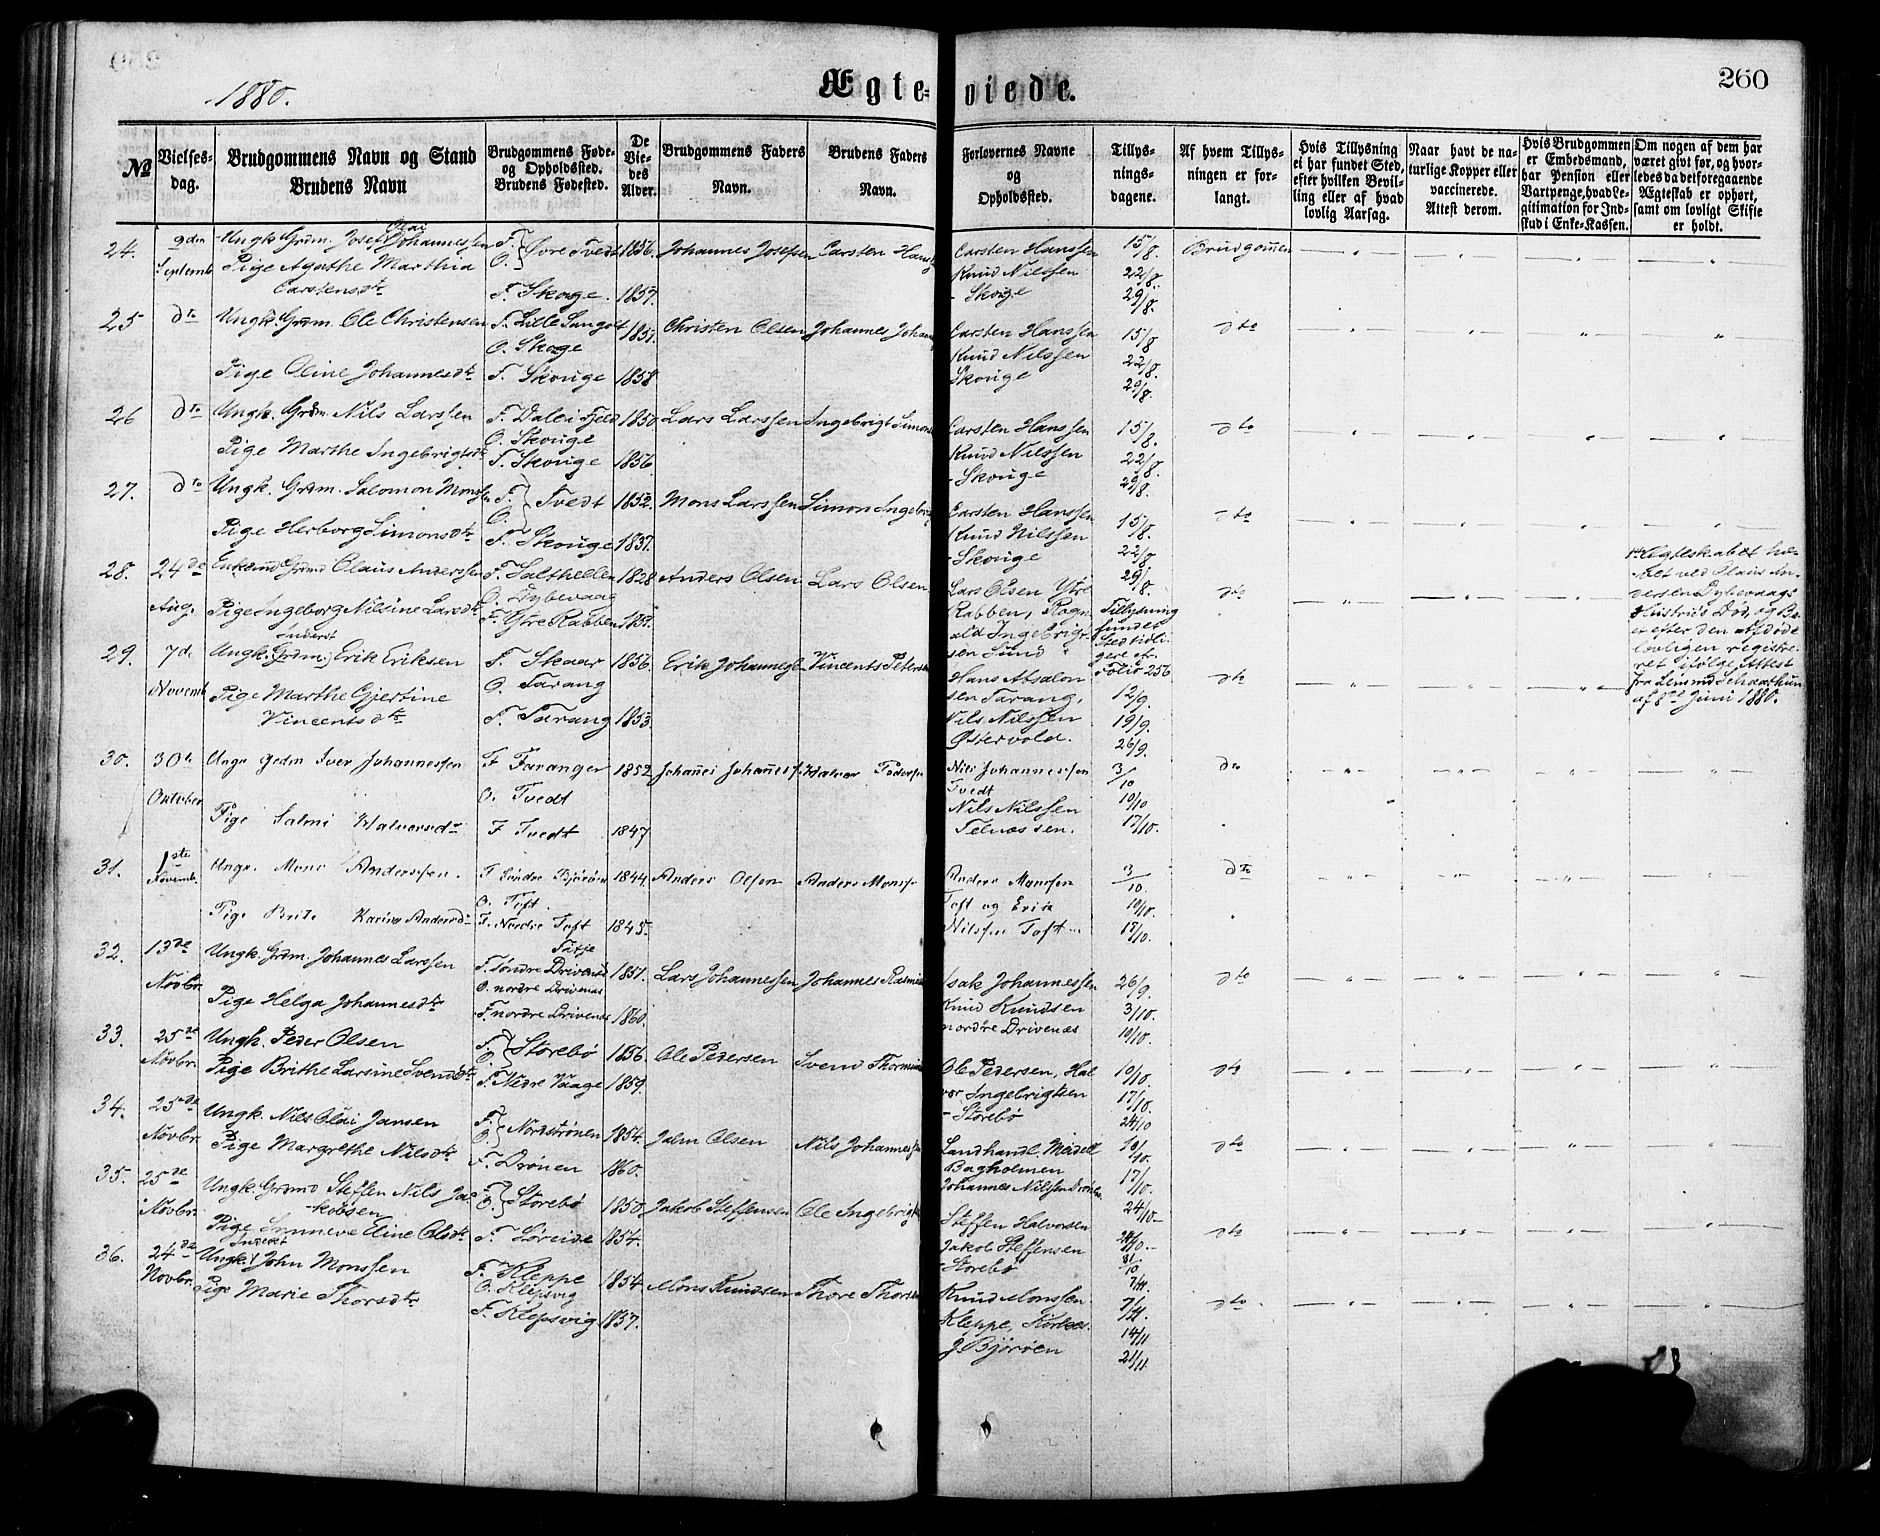 1880.
Ægte-
viede.
260
No
Vielses-
dag.
Brudgommens Navn og Stand
Brudens Navn
Brudgommens Føde-
og Opholdssted.
Brudens Fødested.
De
Vie-
des
Alder.
Brudgommens Faders
Navn.
Brudens Faders
Navn.
Forlovernes Navne
og
Opholdssted.
Tillys-
nings-
dagene.
Af hvem Tillys-
ningen er for-
langt.
Hvis Tillysning
ei har fundet Sted,
efter hvilken Bevil-
ling eller af hvad
lovlig Aarsag.
Naar havt de na-
turlige Kopper eller
vaccinerede.
Attest derom.
Hvis Brudgommen
er Embedsmand,
har Pension eller
Vartpenge, hvad Le-
gitimation for Ind-
skud i Enke-Kassen.
Om nogen af dem har
været givt før, og hvor-
ledes da det foregaaende
Ægteskab er ophørt,
samt om lovligt Skifte
er holdt.
24. 9den Septemb
Ungk. Grdm. Josef Olai Johannessen
Pige Agathe Marthia
Carstensdtr
F. O. Øvre Tvedt 1856. Johannes Josefsen Carsten Hans
F. Skoge. 1857.
Carsten Hanssen
Knud Nilssen
Skouge
15/8.
22/8.
29/8.
Brudgommen
25 dto
Ungk. Grdm. Ole Christensen
Pige Oline Johannesdtr
F. Lille Sangolt
O. Skoge
F. Skouge 1858
Christen Olsen Johannes Johan
Carsten Hanssen
Knud Nilssen
Skouge
15/8.
22/8.
29/8.
dto
26 dto
Ungk. Grdm. Nils Larssen
Pige Marthe Ingebrigtsdtr
F. Dale i Fjeld 1850
O. Skouge
F. Skouge 1856.
Lars Larssen Ingebrigt Simons
Carsten Hanssen
Knud Nilssen
Skouge
15/8.
22/8.
29/8.
dto
27. dto
Ungk. Grdm. Salomon Monssen
Pige Herborg Simonsdtr
F. O. Tvedt 1852.
F. Skouge 1857.
Mons Larssen Simon Ingebrig
Carsten Hanssen
Knud Nilssen
Skouge
15/8.
22/8.
29/8.
dto
28. 24de Aug.
Enkemd Grdmd Olaus Anderssen
Pige Ingeborg Nilsine Larsdtr
F. Salthellen 1828
O. Dybevaag
F. Ytre Rabben
Anders Olsen Lars Olsen
Lars Olsen Ytre
Rabben, Rogn-
ald Ingebrigt-
sen Sund
Tillysning
fundet
Sted tidli-
gere cfr.
Folio 256
dto
Ægteskabet hæ-
vet ved Olaus An-
dersen Dybevaags
Hustrues Død, og Bo
er efter den afdøde
lovligen registre-
ret ifølge Attest
fra Lensmd Schaathun
af 8de Juni 1880.
29. 7de Novemb
Ungk. (Grdm.) Inderst Erik Eriksen
Pige Marthe Gjertine
Vincentsdtr
F. Skaar 1856.
O. Tarang
F. Tarang 1853.
Erik Johannesse Vincents Peters
Hans Absalon-
sen Tarang,
Nils Nilssen
Østervold.
12/9.
19/9.
26/9.
dto
30. 30te Oktober
Ungk Grdm Iver Johannessen
Pige Salmi Halvorsdr
F Taranger 1852
O. Tvedt
F Tvedt 1847
Johannes Johannes Halvor Pederse
Nils Johannessen
Tvedt
Nils Nilssen
Telnæssen.
3/10
10/10
17/10.
do
31. 1ste Novemb.
Ungk. Mons Anderssen.
Pige Brite Karina Andersdr
F Søndre Bjørøen 1844.
O. Toft.
F. Nordre Toft 1845.
Anders Olsen Anders Monsse
Anders Monssen
Toft og Erik
Nilssen Toft
3/10.
10/10.
17/10.
dto
32. 13de Novbr.
Ungk. Grdm. Johannes Larssen
Pige Helga Johannesdtr
F. Søndre Drivenes 1851.
O. nordre Drivenæs
F. nordre Drivenæs 1860.
Lars Johannessen Johannes Rasmus
Isak Johannessen
Knud Knudsen
nordre Drivenæs
26/9.
3/10.
10/10.
dto
33. 25de Novbr.
Ungk. Peder Olsen
Pige Brithe Larsine Svendsdtr
F. O. Storebø 1856.
F. Nedre Vaage 1859.
Ole Pedersen Svend Thormun
Ole Pedersen, Hal-
vor Ingebrigtsen
Storebø
10/10.
17/10.
24/10
dto
34. 25de Novbr.
Ungk. Nils Olai Jansen
Pige Margrethe Nilsdtr
F. O. Nordstrønen 1854.
F. Drønen 1860.
John Olsen Nils Johannesse
Landhandl. Meidell
Bagholmen
Johannes Nilssen Drønen
10/10.
17/10.
24/10
dto
35. 25de Novbr.
Ungk. Grdmd Steffen Nils Ja-
kobsen
Pige Synneve Eline Olsdtr
F. O. Storebø 1850.
F. Søreide 1854.
Jakob Steffensen Ole Ingebrigt
Steffen Halvorsen
Jakob Steffensen
Storebø
24/10
31/10
7/11.
dto
36. 24de Novbr.
Ungk. Inderst John Monssen
Pige Marie Thorsdtr
F. Kleppe 1854
O. Klepsvig
F. Klepsvig 1857.
Mons Knudsen Thore Thors
Knud Monssen
Kleppe,
Bjørøen
7/11.
14/11
21/11
dto